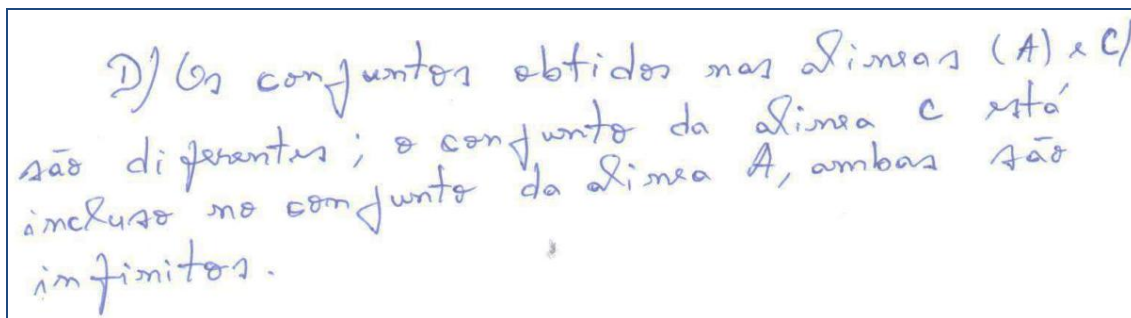 D) Os conjuntos obtidos nas alineas (A) e C)
são diferentes; o conjunto da alinea C está
incluso no conjunto da alinea A, ambas são
infinitos.